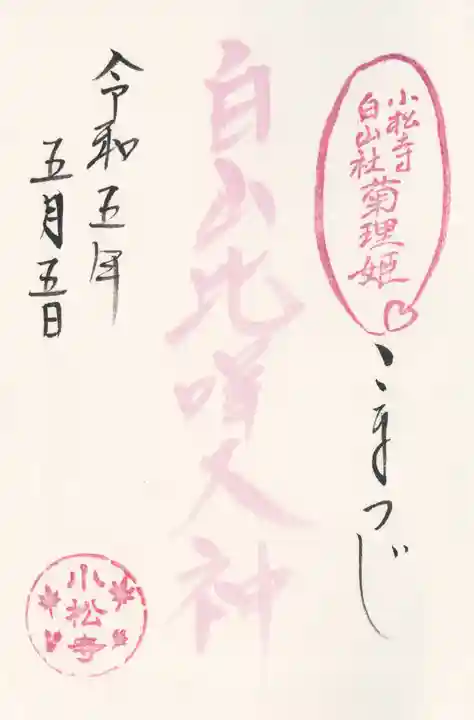 小松寺
白山社
菊理姫
こまつじ
白山比咩大神
令和五年
五月五日
小松寺